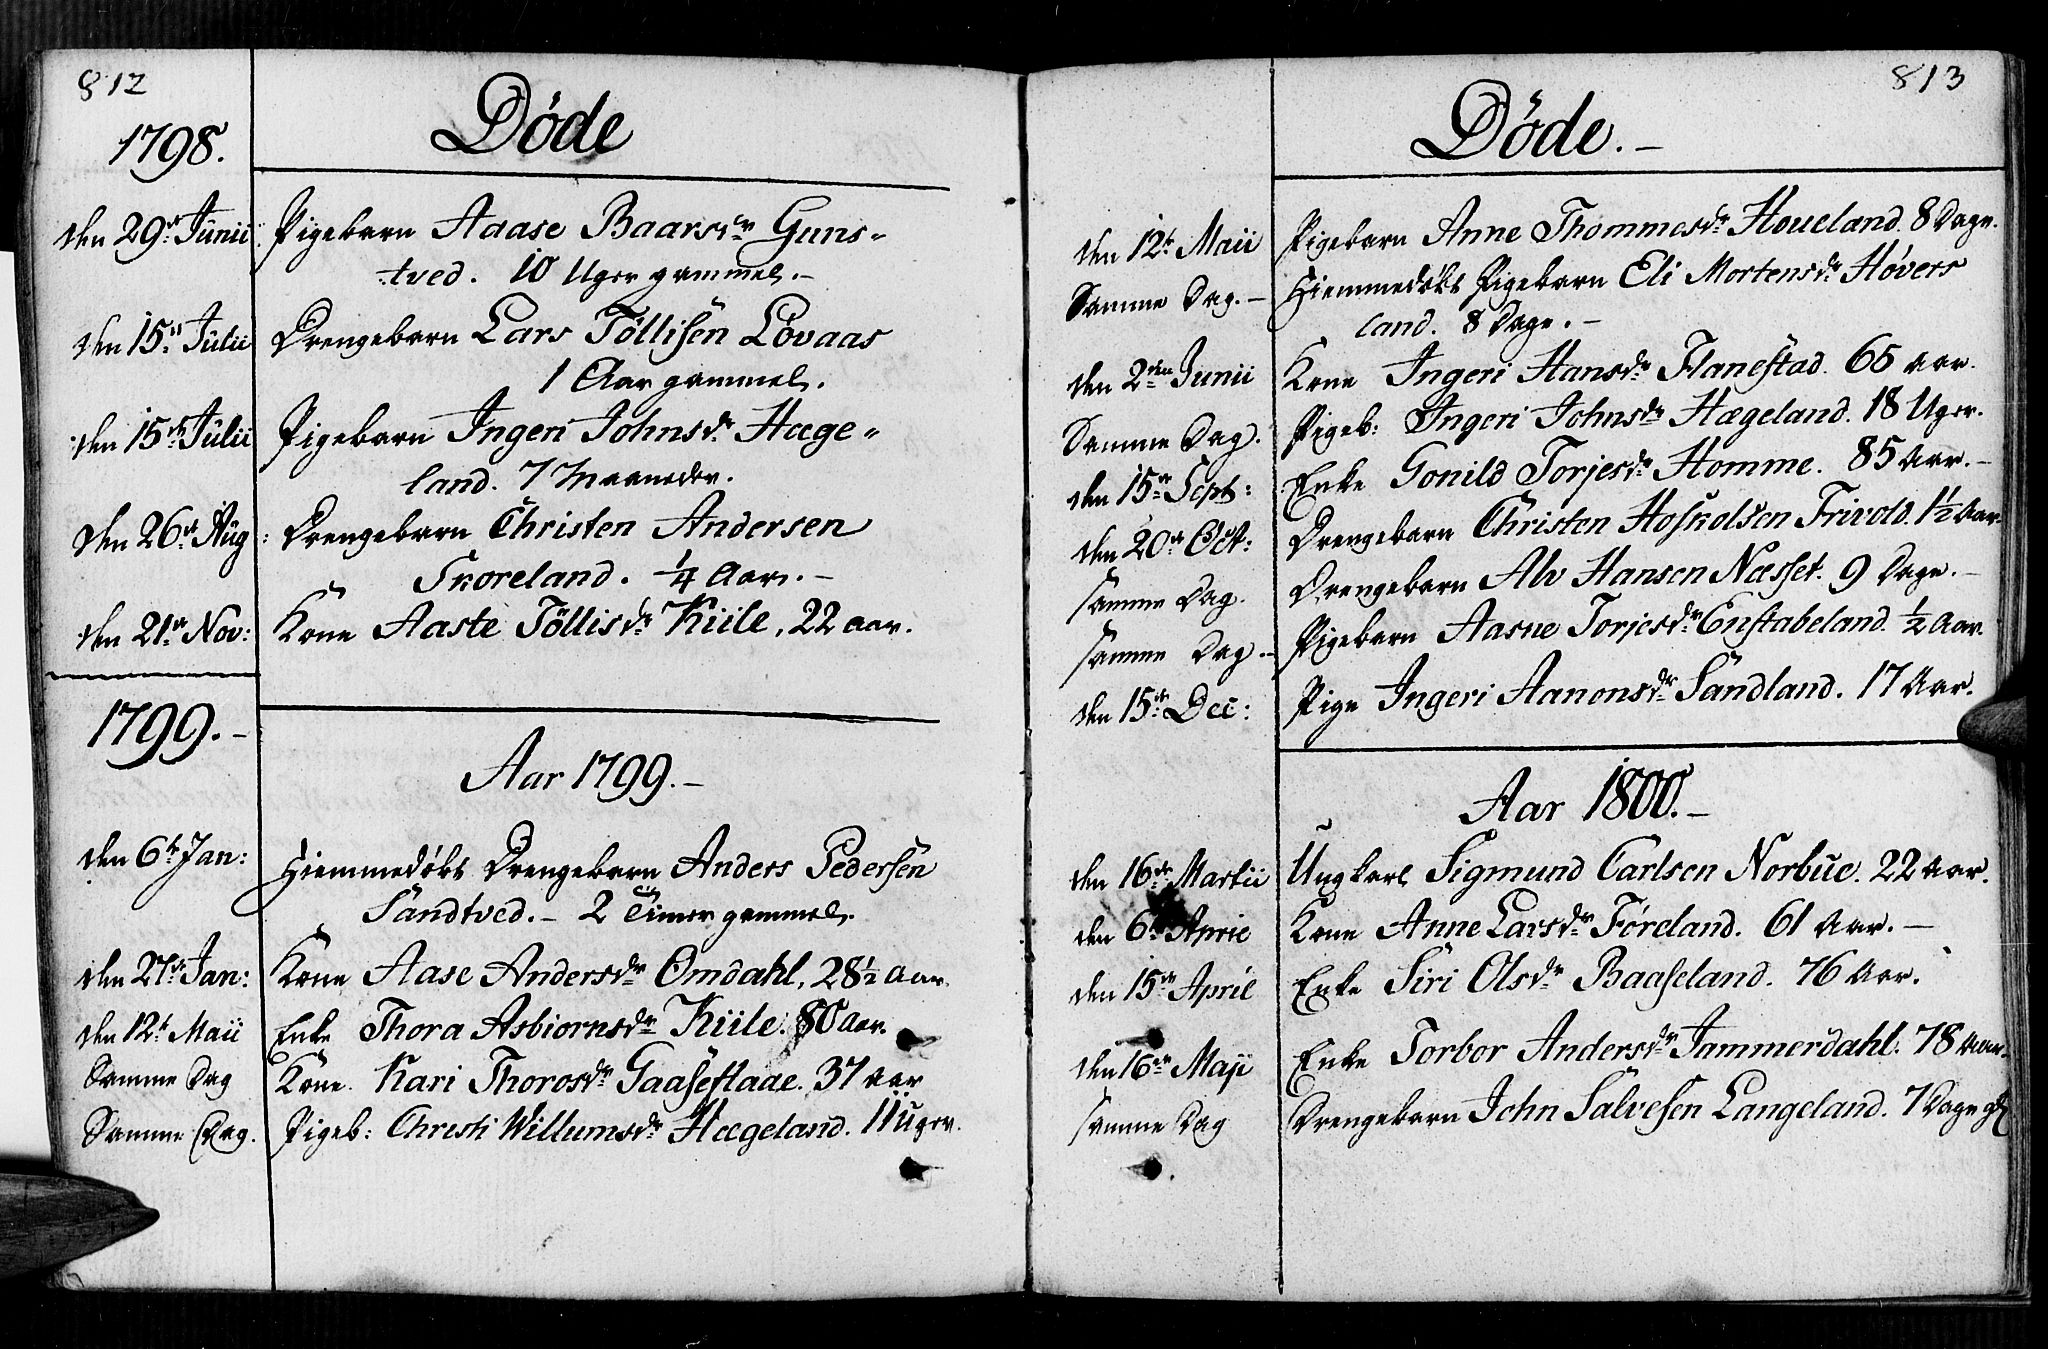 812
1798.
Döde
den 29de Junii Pigebarn Aaase Baarsdr Guns-
tved. 10 Uger gammel.-
den 15de Julii Drengebarn Lars Töllisen Lövaas
1 Aar gammel.
den 15de Julii Pigebarn Ingeri Johnsdr Hæge-
land. 7 Maaneder.
den 26de Aug: Drengebarn Christen Andersen
Skoreland. 1/4 Aar.-
den 21de Nov: Kone Aaste Töllisdr Kiile, 22 aar.
1799.-
Aar 1799.-
den 6te Jan: Hiemmedøbt Drengebarn Anders Pedersen
Sandtved.- 2 Timer gammel.
den 27de Jan: Kone Aase Andersdr Omdahl, 28 1/2 Aar.
den 12te Maii Enke Thora Asbiornsdr Kiile. 80 Aar.
Samme Dag Kone. Kari Thorosdr Gaasestaae. 37 Aar
Samme Dag. Pigeb: Christi Willumsdr Hægeland. 11 Uger.
813
Döde.-
den 12te Maii Pigebarn Anne Thommesdr Houeland. 8 Dage.
Samme Dag.- Hiemmedøbt Pigebarn Eli Mortensdr Høvers
land. 8 Dage.-
den 2den Junii Kone Ingeri Hansdr Flanestad. 65 Aar.
Samme Dag. Pigeb: Ingeri Johnsdr Hægeland. 18 Uger.
den 15de Sept: Enke Gonild Torjesdr Homme. 85 Aar.-
den 20de Oct: Drengebarn Christen Hoskolsen Frivold. 1 1/2 Aar.
samme Dag. Drengebarn Alv Hansen Næsset. 9 Dage.-
samme Dag.- Pigebarn Aasne Torjesdr Enstabeland. 1/2 Aar.
den 15de Dec: Pige Ingeri Aanonsdr Sandland. 17 Aar.
Aar 1800.-
den 16de Martii Ungkarl Sigmund Carlsen Norbue. 22 Aar.
den 6te April Kone Anne Larsdr Føreland. 61 Aar.-
den 15de April Enke Siri Olsdr Baaseland. 76 Aar.
den 16de Maji Enke Torbor Andersdr Jammerdahl. 78 Aar.
samme Dag Drengebarn John Salvesen Langeland. 7 Dage gl